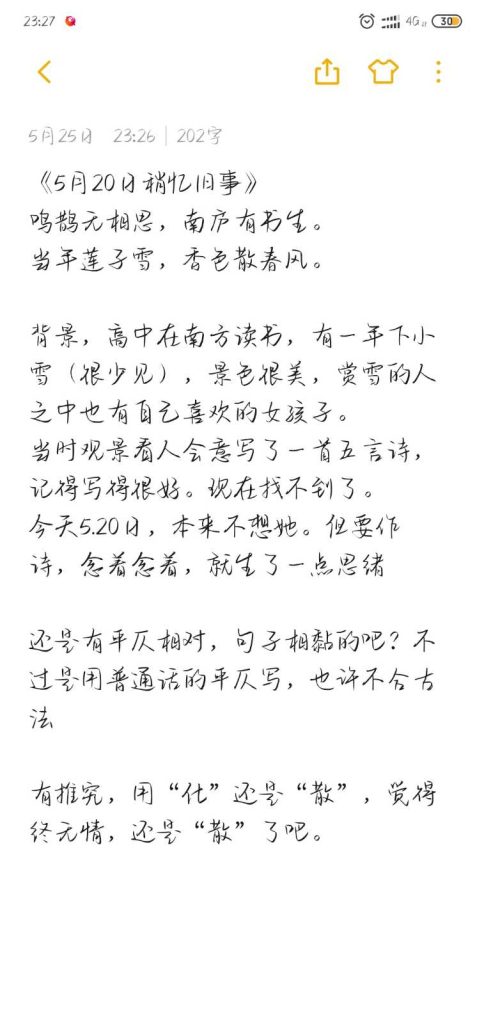 23:27 4G 30
5月25日 23:26 | 202字
《5月20日稍忆旧事》
鸣鹊无相思，南庐有书生。
当年莲子雪，香色散春风。
背景，高中在南方读书，有一年下小
雪（很少见），景色很美，赏雪的人
之中也有自己喜欢的女孩子。
当时观景看人会意写了一首五言诗，
记得写得很好。现在找不到了。
今天5.20日，本来不想她。但要作
诗，念着念着，就生了一点思绪
还是有平仄相对，句子相黏的吧？不
过是用普通话的平仄写，也许不合古
法
有推究，用“化”还是“散”，觉得
终无情，还是“散”了吧。